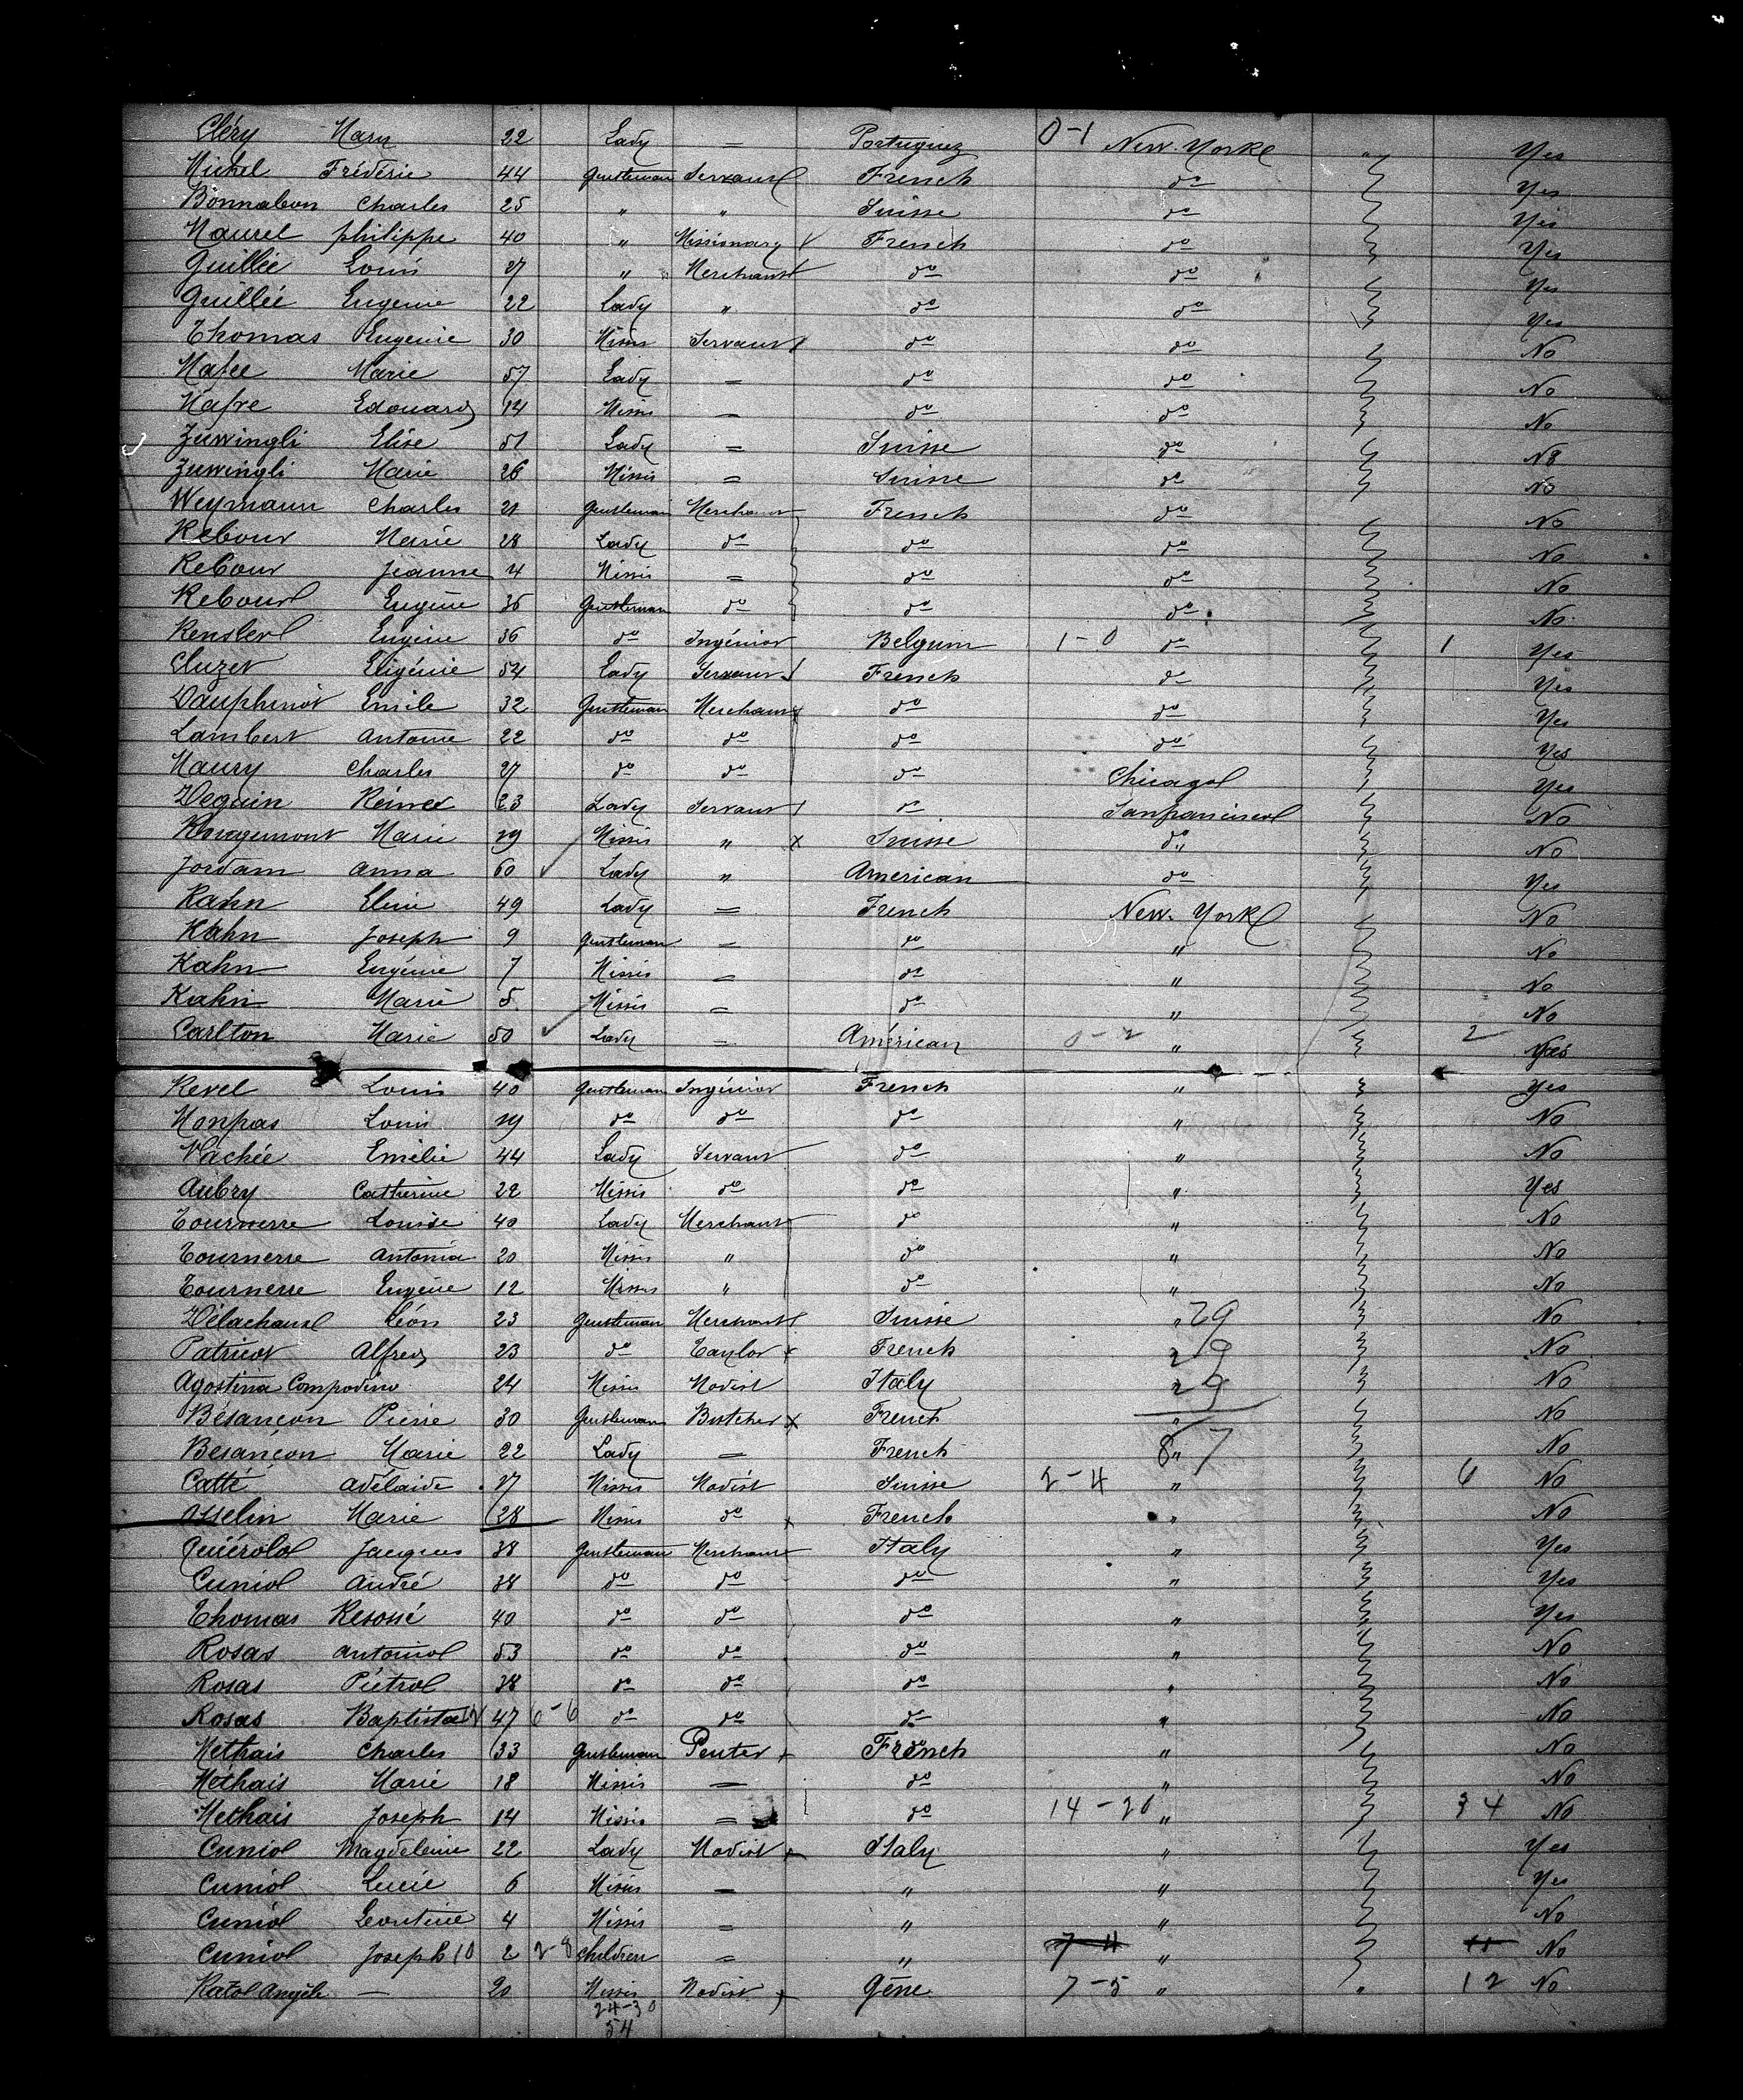 Cléry Mary 22 Lady = Portuguez 0-1 New. York " Yes
Michel Fréderic 44 Gentleman Servant French do Yes
Bonnabon Charles 25 " " Suisse do Yes
Maurel philippe 40 " Missionary French do Yes
Guillée Louis 27 " Merchant do do Yes
Guillée Eugenie 22 Lady " do do Yes
Thomas Eugenie 30 Miss Servant do do No
Marie 57 Lady = do do No
Edouard 14 Missis = do do No
Zuwingli Elise 51 Lady = Suisse do No
Zuwingli Marie 26 Missis = Suisse do No
Weymann Charles 21 Gentleman Merchant French do No
Rebour Marie 28 Lady do do do No
Rebour Jeanne 4 Missis = do do No
Rebour Eugène 36 Gentleman do do do No
Eugène 36 do Ingénior Belgium 1-0 do 1 Yes
Cluzet Eugénie 54 Lady Servant French do Yes
Dauphinot Emile 32 Gentleman Merchant do do Yes
Lambert Antoine 22 do do do do Yes
Maury Charles 27 do do do Chicago Yes
Deguin 23 Lady Servant do Sanfrancisco No
Marie 29 Missis " x Suisse do " No
Jordam Anna 60 Lady " American do Yes
Kahn Elise 49 Lady = French New. York No
Kahn Joseph 9 Gentleman = do " No
Kahn Eugénie 7 Missis = do " No
Kahn Marie 5 Missis = do " No
Carlton Marie 50 Lady = Américan 0-2 " 2 Yes
Revel Louis 40 Gentleman Ingénior French " Yes
Monpas Louis 29 do do do " No
Vachée Emélie 44 Lady Servant do " No
Aubry Catherine 22 Missis do do " Yes
Tournerre Louise 40 Lady Merchant do " No
Tournerre Antonia 20 Missis " do " No
Tournerre Eugène 12 Missis " do " No
Délachaux Léon 23 Gentleman Merchant Suisse " 29 No
Patricot Alfred 23 do Taylor x French 29 No
Agostina Compodino 24 Missis Modist Italy 29 No
Bésançon Pierre 30 Gentleman Butcher x French " No
Besançon Marie 22 Lady = French 87 " No
Catté Adélaide 27 Missis Modist Suisse 2-4 " 6 No
Asselin Marie 28 Missis do x French " No
Quiérolo Jacques 38 Gentleman Merchant Italy " Yes
Cuniol André 38 do do do " Yes
Thomas Resossé 40 do do do " Yes
Rosas Antoniol 53 do do do " No
Rosas Piétrol 38 do do do " No
Rosas Baptista 12 47 6-6 do do do " No
Méthais Charles 33 Gentleman Penter x French " No
Méthais Marie 18 Missis = do " No
Methais Joseph 14 Missis = do 14-20 " 34 No
Cuniol Magdeleine 22 Lady Modist x Italy " Yes
Cuniol Lucie 6 Missis = " " Yes
Cuniol Leontine 4 Missis = " " No
Cuniol Joseph 10 2 2-8 children = " 7-4 " 11 No
Ratol Angèle — 20 Missis Modist x Gêne 7-5 " " 12 No
24-30
54